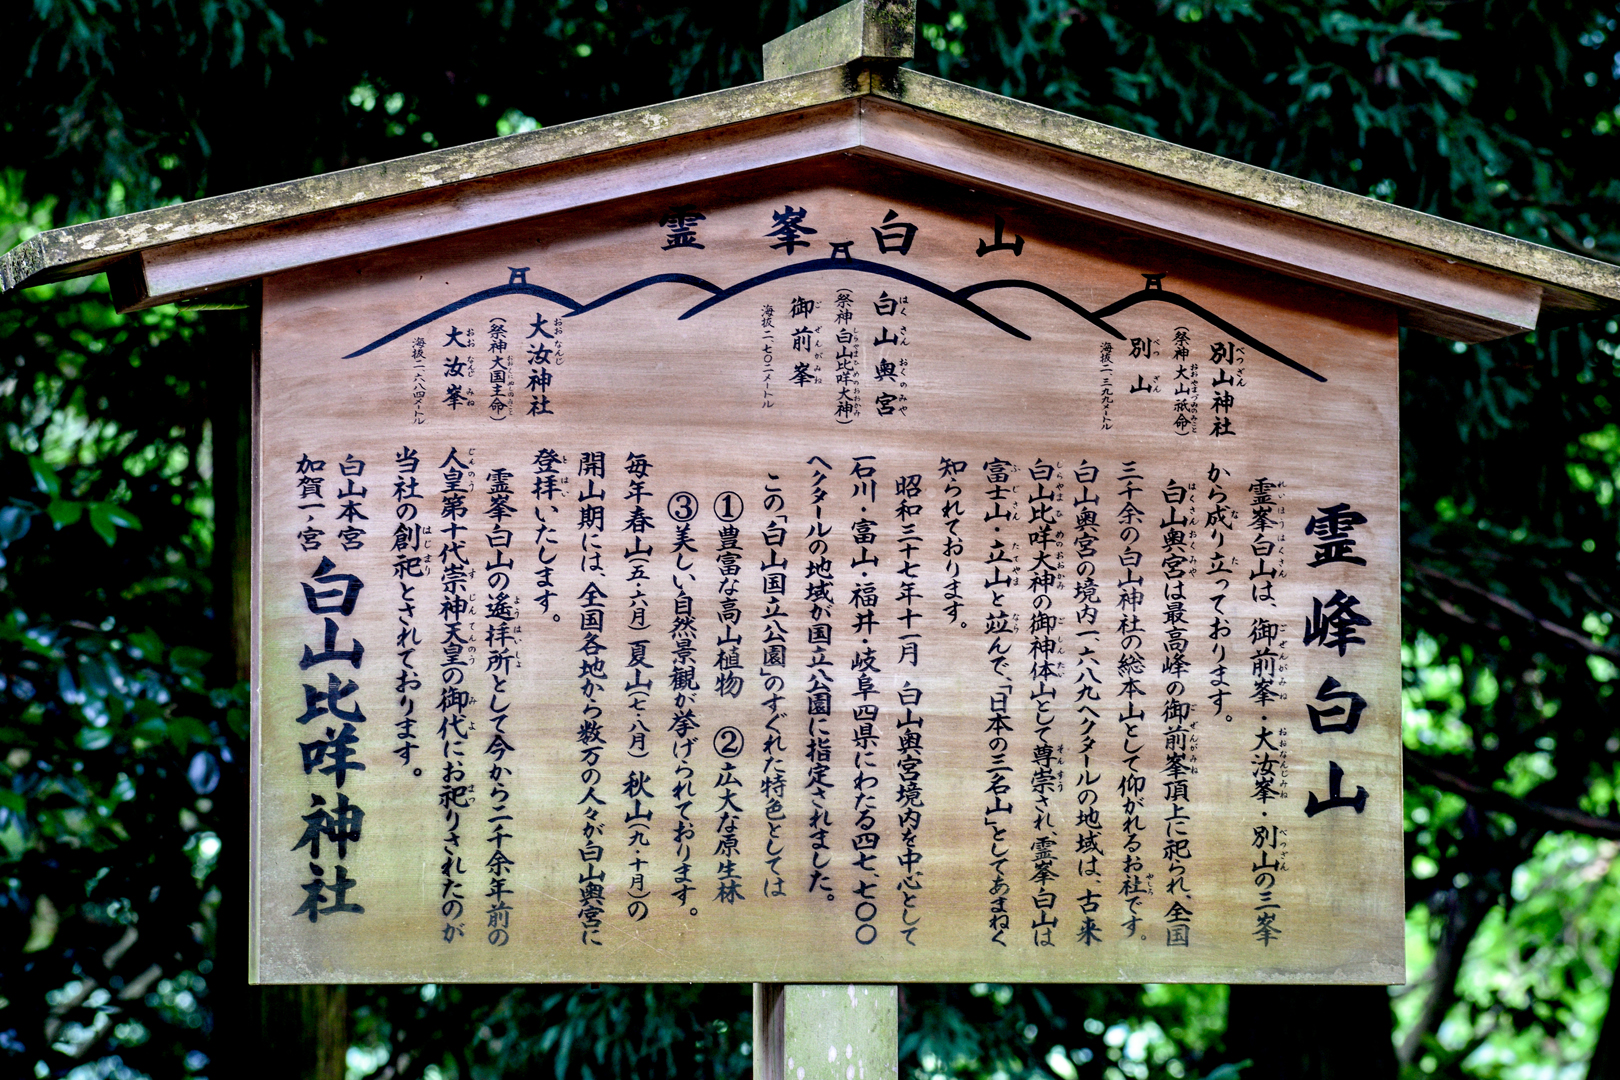 霊峯白山
別山神社
(祭神大山祇命)
別山
海抜二、三九九メートル
白山奥宮
(祭神白山比咩大神)
御前峯
海抜二、七〇二メートル
大汝神社
(祭神大国主命)
大汝峯
海抜二、六八四メートル
霊峰白山
霊峯白山は、御前峯・大汝峯・別山の三峯
から成り立っております。
白山奥宮は最高峰の御前峯頂上に祀られ、全国
三千余の白山神社の総本山として仰がれるお社です。
白山奥宮の境内一、六八九ヘクタールの地域は、古来
白山比咩大神の御神体山として尊崇され、霊峯白山は
富士山・立山と竝んで、「日本の三名山」としてあまねく
知られております。
昭和三十七年十一月 白山奥宮境内を中心として
石川・富山・福井・岐阜四県にわたる四七、七〇〇
ヘクタールの地域が国立公園に指定されました。
この「白山国立公園」のすぐれた特色としては
①豊富な高山植物 ②広大な原生林
③美しい自然景観が挙げられております。
毎年春山(五・六月)夏山(七・八月) 秋山(九・十月)の
開山期には、全国各地から数万の人々が白山奥宮に
登拝いたします。
霊峯白山の遙拝所として今から二千余年前の
人皇第十代崇神天皇の御代にお祀りされたのが
当社の創祀とされております。
白山本宮
加賀一ノ宮
白山比咩神社